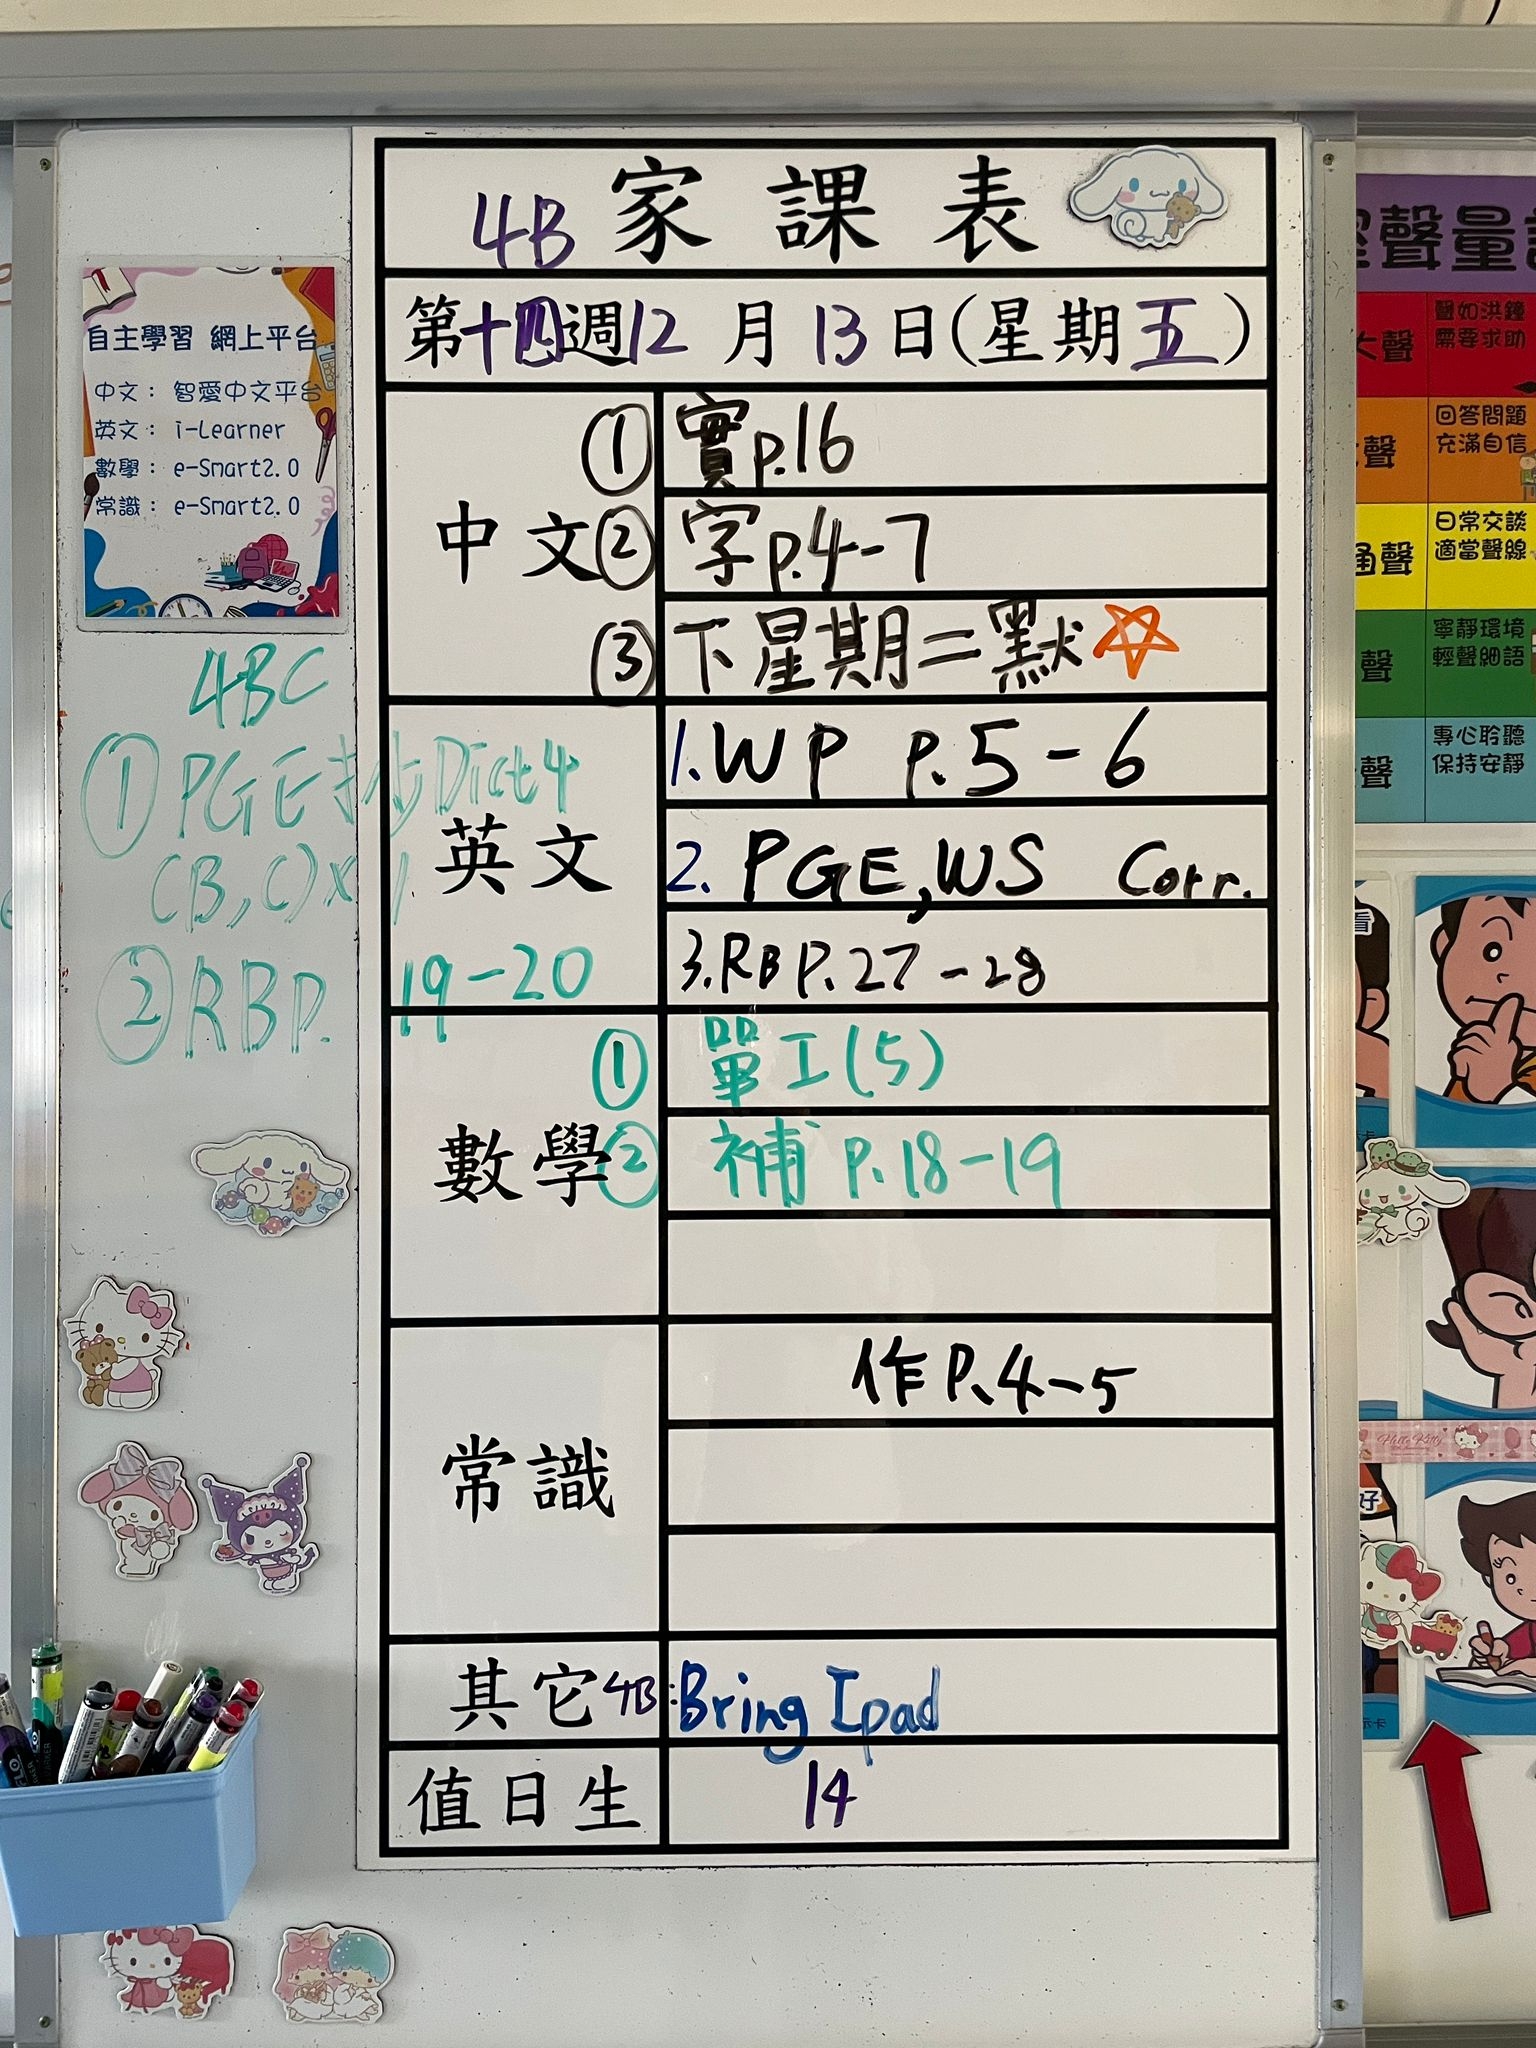 4B 家課表
第十四週12月13日(星期五)
中文
① 實p.16
② 字p.4-7
③ 下星期二默
英文
1. WP p.5-6
2. PGE, WS Corr.
3. RB P.27-28
數學
① 單工(5)
② 補 P.18-19
常識
作P.4-5
其它 4B: Bring Ipad
值日生 14
自主學習 網上平台
中文: 智愛中文平台
英文: i-Learner
數學: e-Smart2.0
常識: e-Smart2.0
4BC
① PGE 抄 Dict 4
(B,C)x1
② RBP. 19-20
聲量
大聲
聲如洪鐘
需要求助
聲
回答問題
充滿自信
通聲
日常交談
適當聲線
聲
寧靜環境
輕聲細語
聲
專心聆聽
保持安靜
看
好
Hello Kitty
示卡